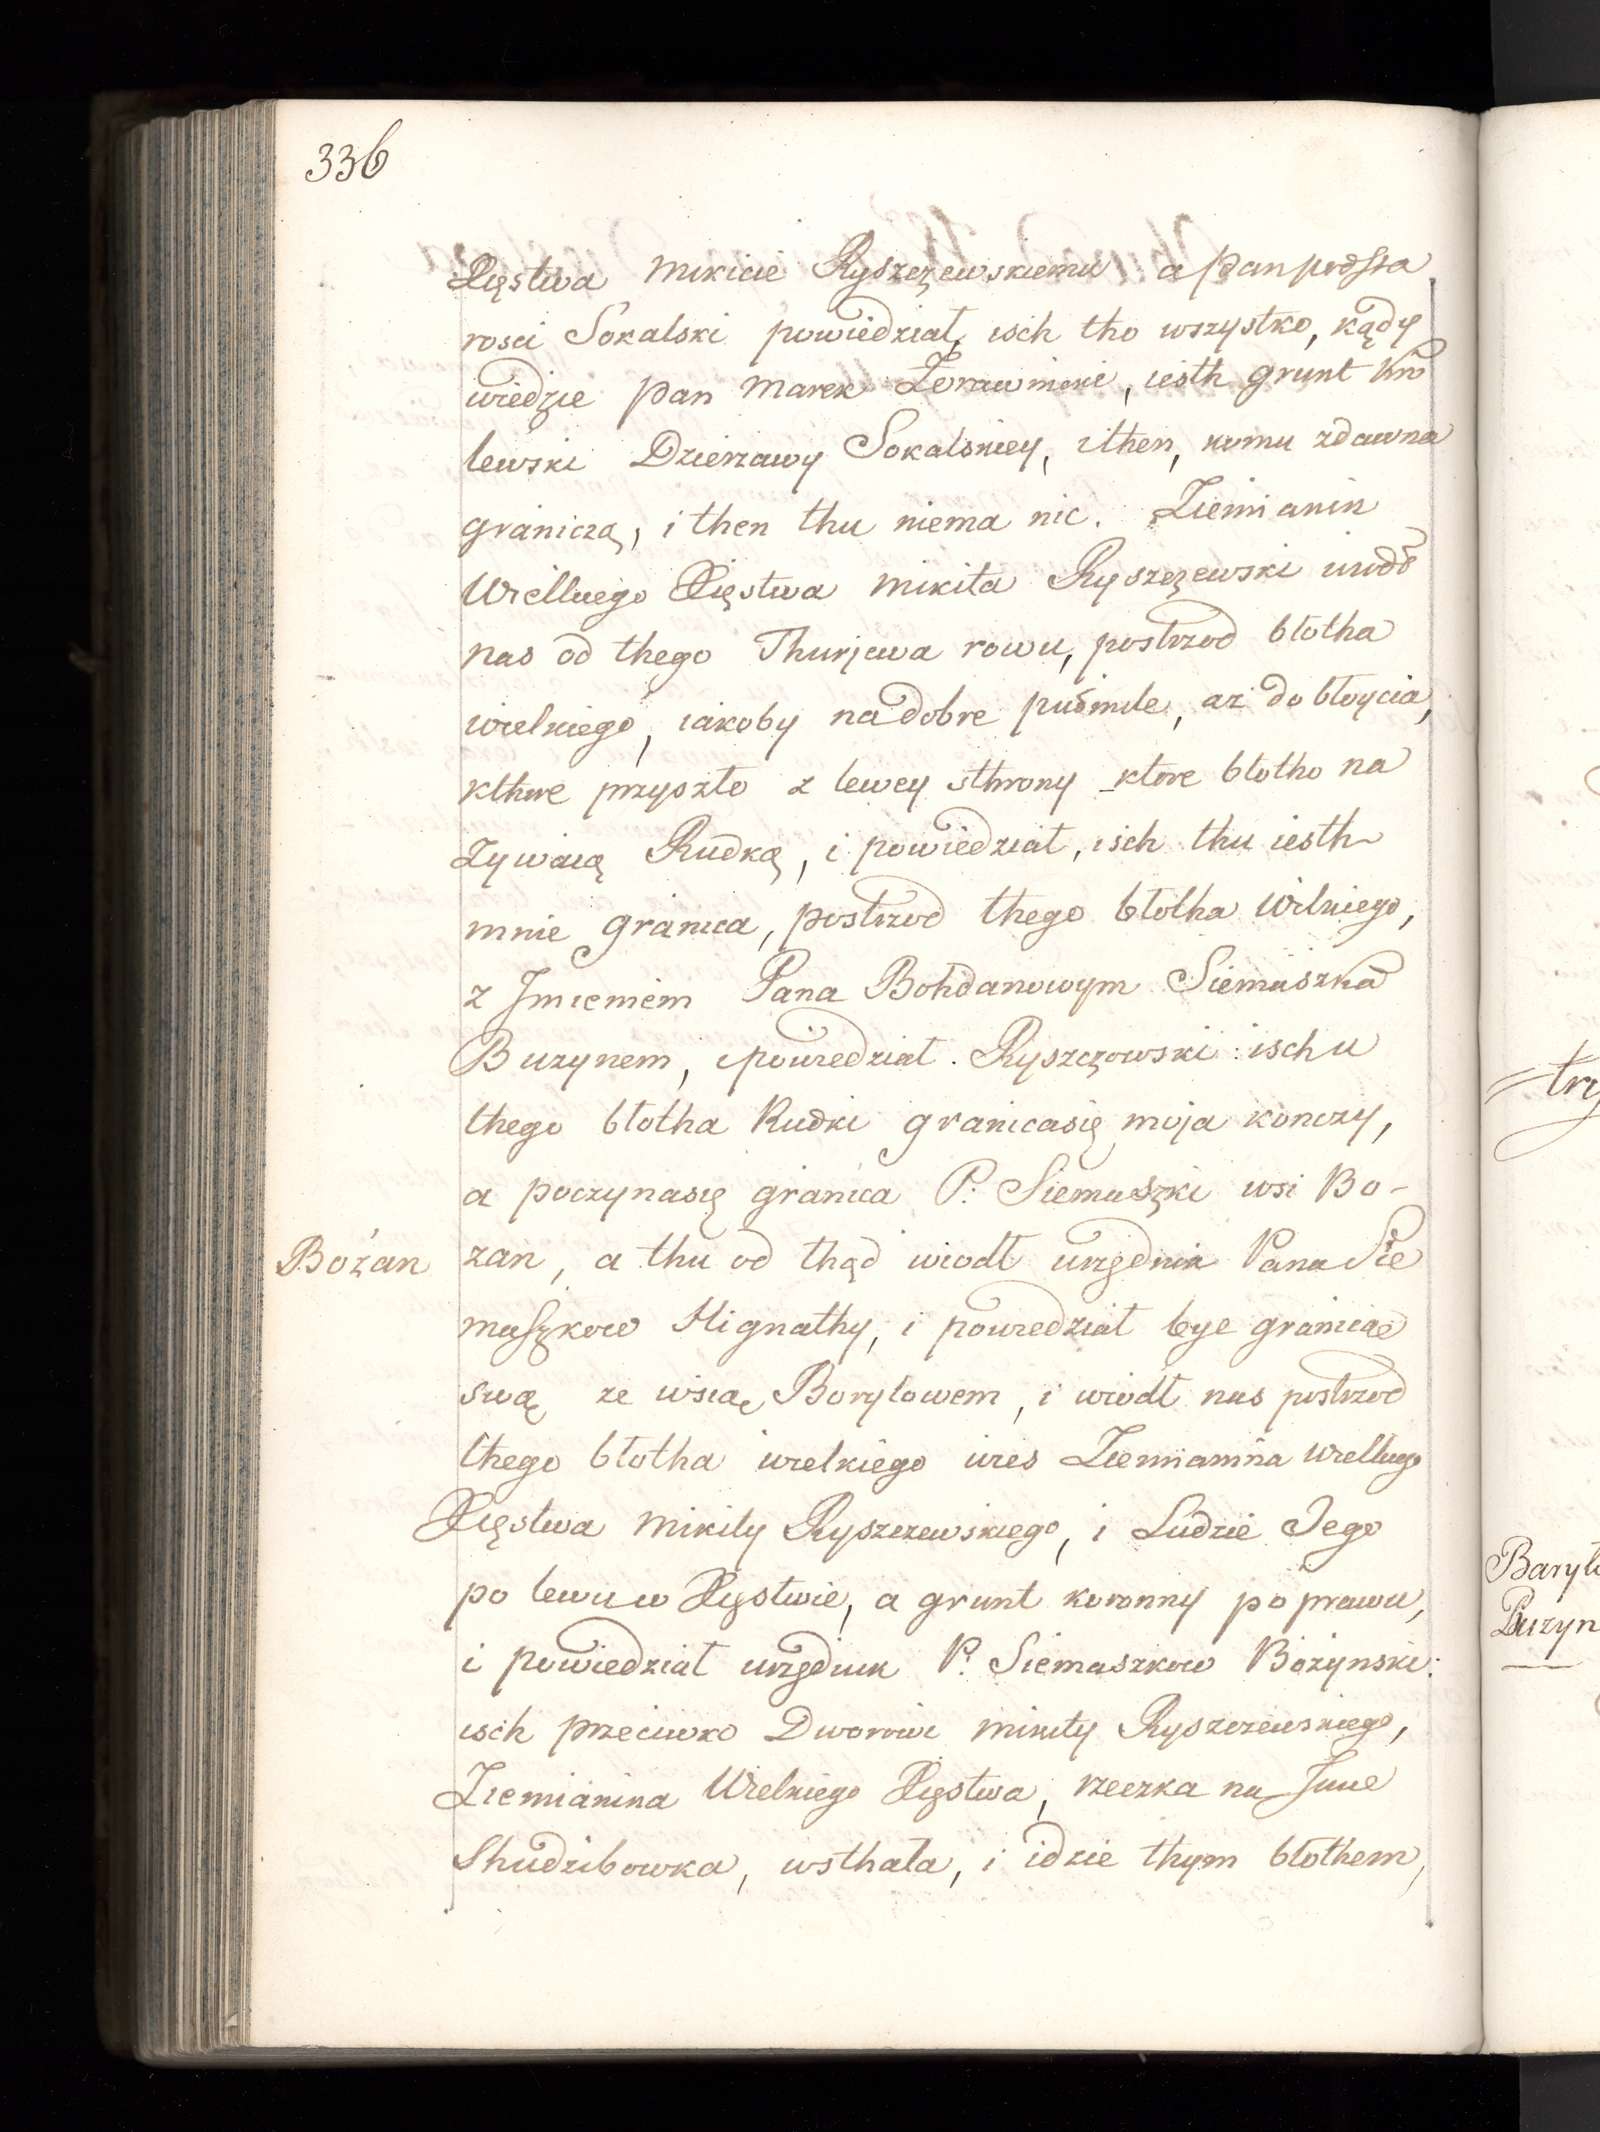 336
Xięstwa Mikicie Ryszczewskiemu a pan podsta
rosci Sokalski powiedział, isch tho wszystko, kądy
wiedzie pan Marek Zorawinski, iesth grunt Kró
lewski Dzierzawy Sokalskiey, i then, komu zdawna
graniczą, i then thu niema nic. Ziemianin
Wielkiego Xięstwa Mikita Ryszczewski wiodł
nas od thego Thurjewa rowu, postrzod błotha
wielkiego, iakoby na dobre pułmile, aż do błoycia,
kthore przyszło z lewey sthrony które błotho na
zywaią Rudką, i powiedział, isch thu iesth
mnie granica, postrzod thego błotha wilkiego,
z Jmieniem Pana Bohdanowym Siemaszka
Buzynem, i powiedział Ryszczowski: isch u
thego błotha Rudki granicasię moja konczy,
a poczynasię granica P. Siemaszki wsi Bo-
Bożan
zan, a thu od thąd wiodł urzędnik Pana Sie
maszkow Hignathy, i powiedział bye granicae
swą ze wsią Borylowem, i wiodł nas postrzod
thego błotha wielkiego wies Ziemianina Wielkiego
Xięstwa Mikity Ryszczewskiego, i Ludzie Jego
po lewu w Xięstwie, a grunt koronny po prawu,
i powiedział urzędnik P. Siemaszkow Bożynski:
isch przeciwko Dworowi Mikity Ryszczewskiego,
Ziemianina Wielkiego Xięstwa, rzeczka na Jmie
Shudzibowka, wsthała, i idzie thym błothem,
Baryło
Buzyn